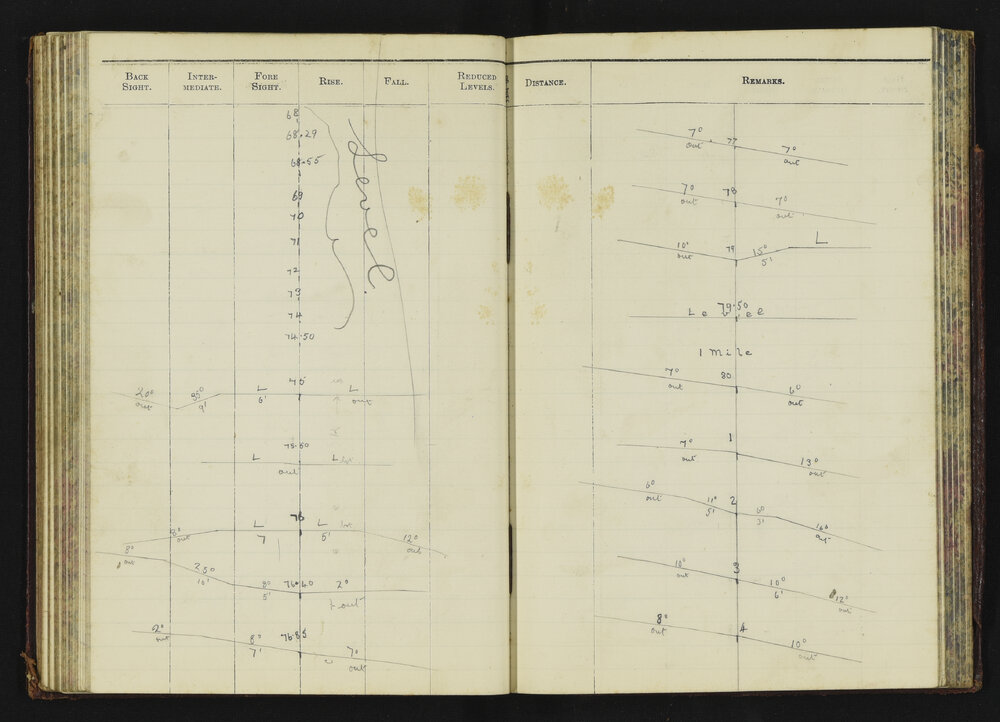 BACK SIGHT. INTER- MEDIATE. FORE SIGHT. RISE. FALL. REDUCED LEVELS.
68
68.29
68.55
69
70
71
72
73
74
74.50
Level.
75
20° L L
out 9' 6' out
75.50
L L
out
76
8° L L 12°
out 7 5' out
8° 76.40
out 25° 8° 2°
10' 5' out
76.85
2° 8° 7°
out 7' out
DISTANCE. REMARKS.
77
7° 7°
out out
78
7° 7°
out out
79
10° 15° L
out 5'
79.50
Level
1 Mile
80
7° 6°
out out
1
7° 13°
out out
2
6° 11° 6° 14°
out 5' 3' out
3
10° 10° 12°
out 6' out
4
8° 10°
out out